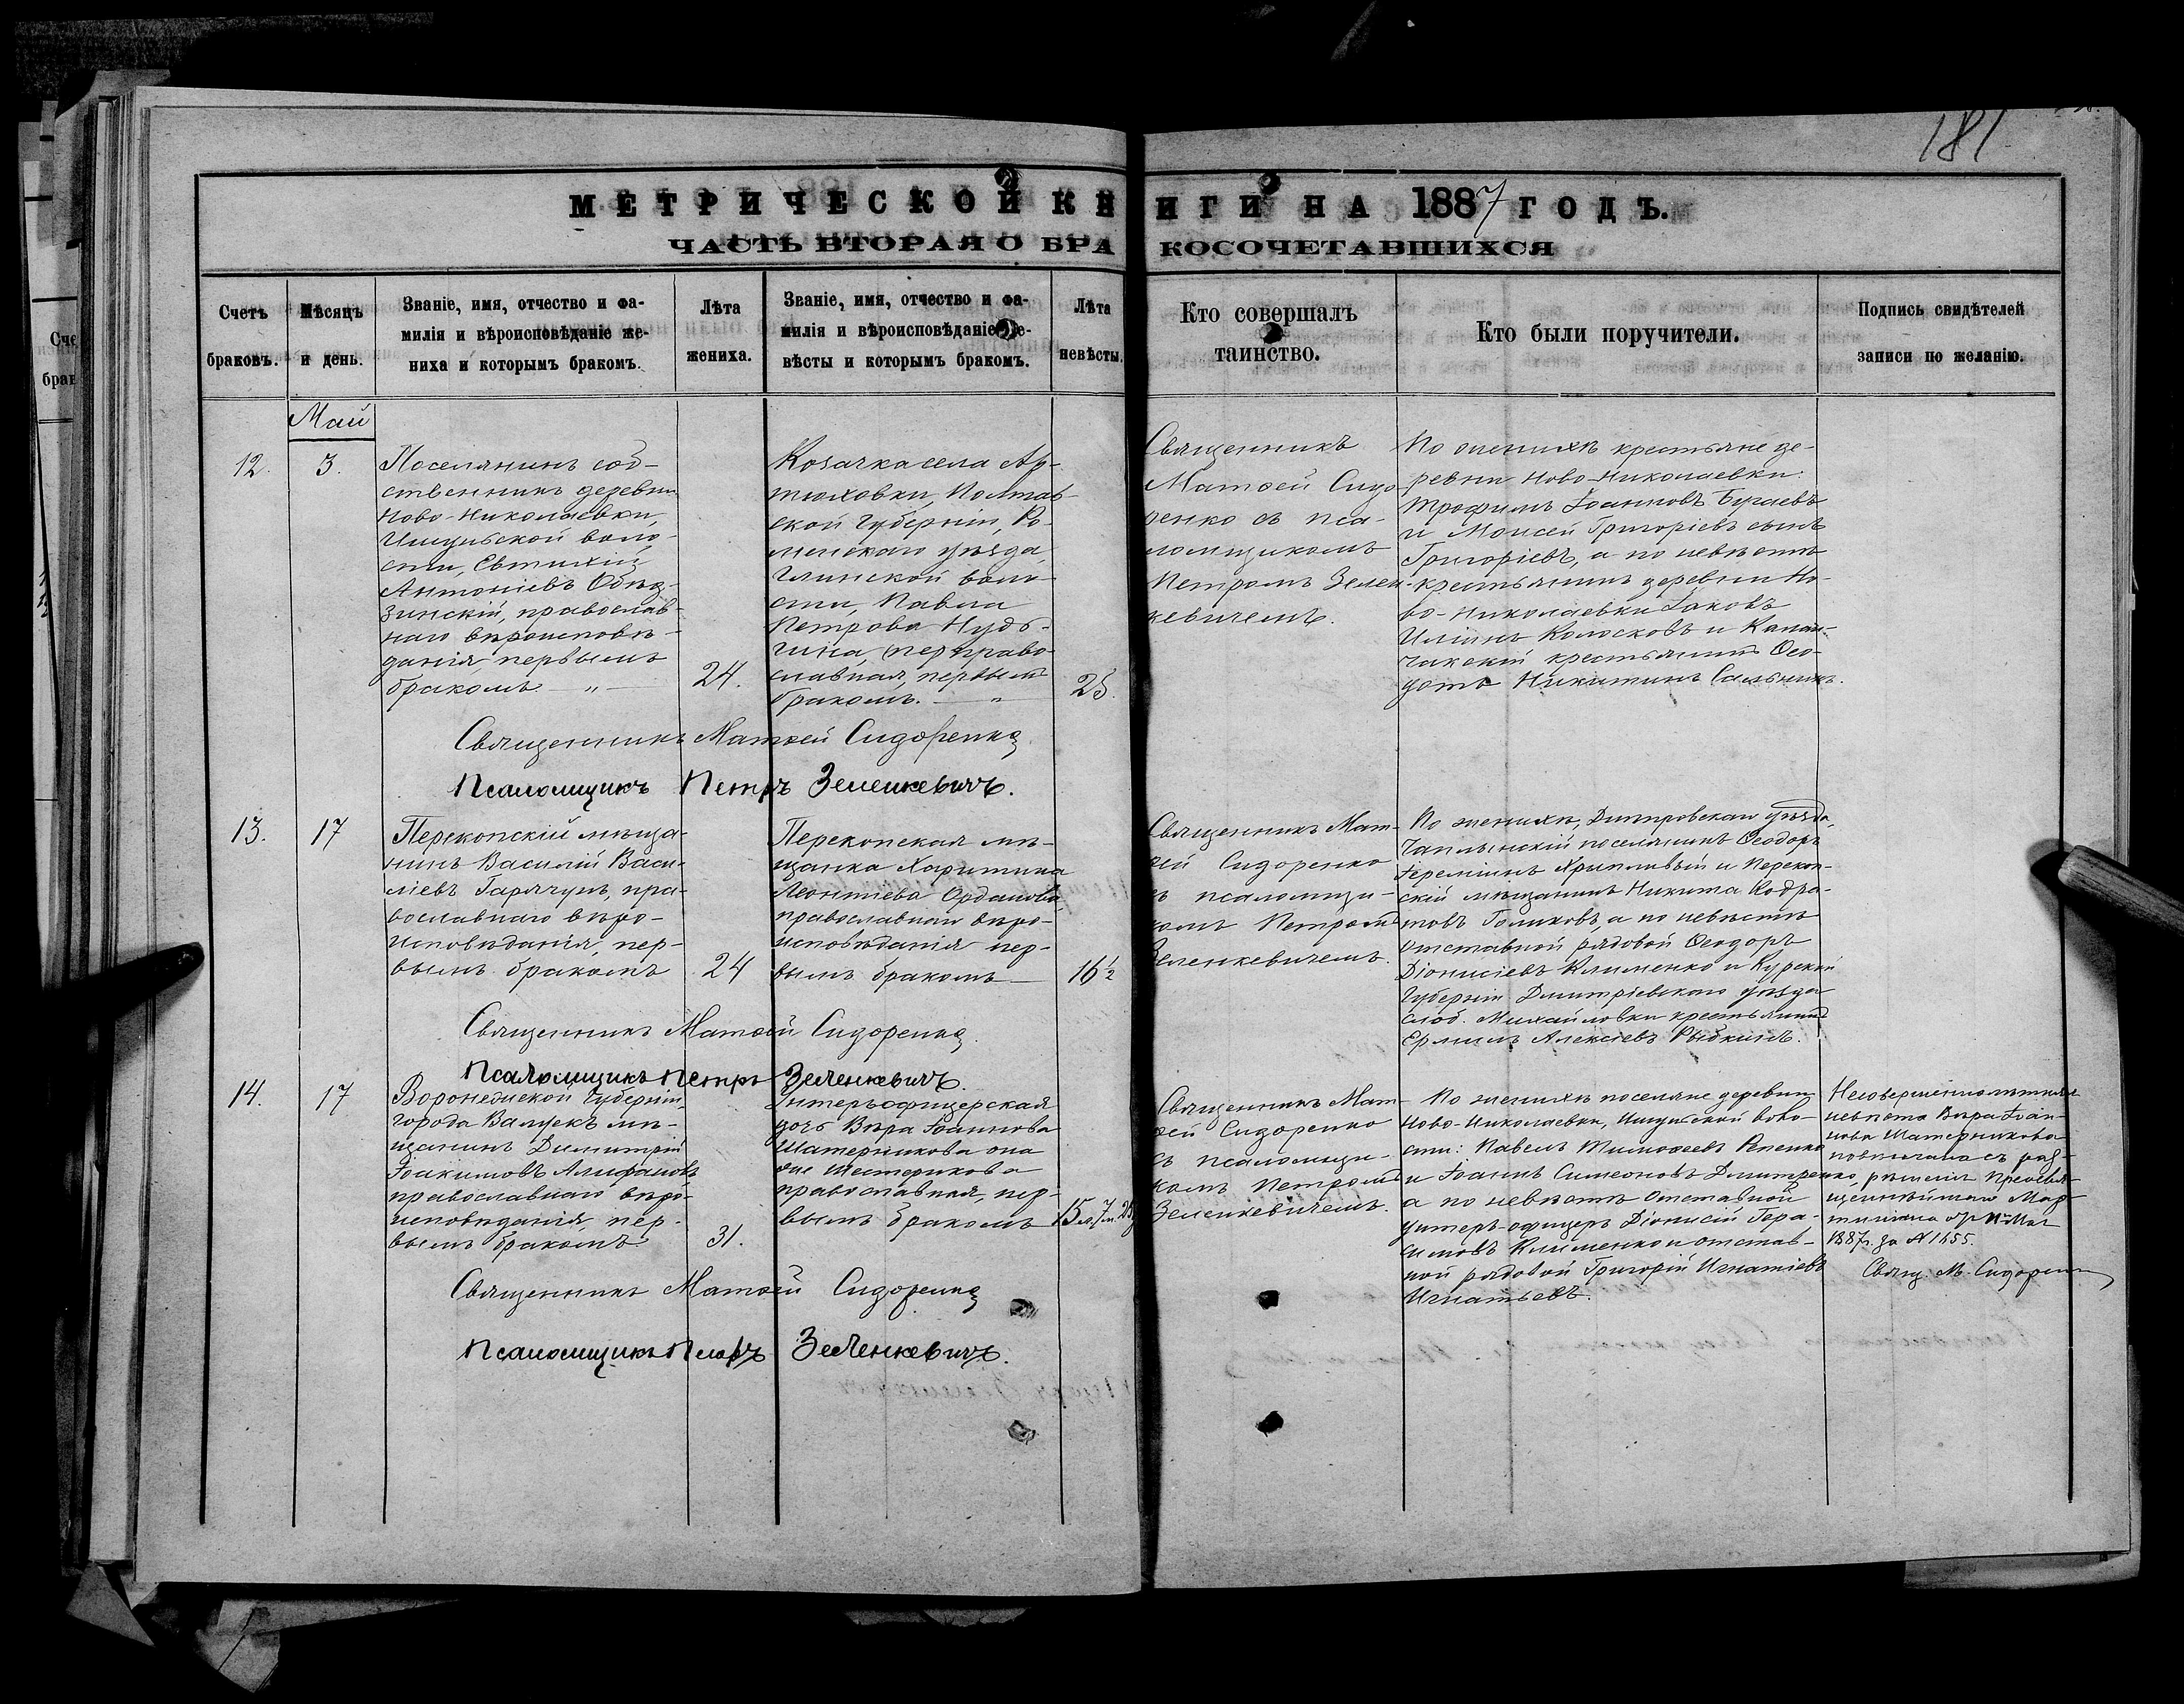 181
МЕТРИЧЕСКОЙ КНИГИ НА 1887 ГОДЪ.
ЧАСТЬ ВТОРАЯ О БРАКОСОЧЕТАВШИХСЯ
Счетъ
браковъ.
Мѣсяцъ
и день.
Званіе, имя, отчество и фа-
милія и вѣроисповѣданіе же-
ниха и которымъ бракомъ.
Лѣта
жениха.
Званіе, имя, отчество и фа-
милія и вѣроисповѣданіе не-
вѣсты и которымъ бракомъ.
Лѣта
невѣсты.
Кто совершалъ
таинство.
Кто были поручители.
Подпись свидѣтелей
записи по желанію.
Май
12.
3.
Поселянинъ соб-
ственникъ деревни
Ново-Николаевки,
воло-
сти, Евтихій
Антоніевъ
православ-
наго вѣроисповѣ-
данія, первымъ
бракомъ — „ —
24.
Козачка села Ар-
тюховки, Полтав-
ской Губерніи, Ро-
менскаго уѣзда,
Глинской воло-
сти, Павла
Петрова
право-
славная, первымъ
бракомъ. — „
25.
Священникъ
Матѳей Сидо-
ренко съ пса-
ломщикомъ
Петромъ Зелен-
кевичемъ.
По женихѣ крестьяне де-
ревни Ново-Николаевки:
Трофимъ Іоанновъ Бугаевъ
и Моисей Григоріевъ сынъ
Григоріевъ, а по невѣстѣ
крестьянинъ деревни Но-
во-Николаевки Іаковъ
Иліинъ Колосковъ и Калан-
чакскій крестьянинъ Ѳео-
дотъ Никитинъ Сальникъ.
Священникъ Матѳей Сидоренко
Псаломщикъ Петръ Зеленкевичъ.
13.
17
Перекопскій мѣща-
нинъ Василій Васи-
ліевъ Гарячунъ, пра-
вославнаго вѣро-
исповѣданія, пер-
вымъ бракомъ
24
Перекопская мѣ-
щанка Харитина
Леонтіева Орданова,
православнаго вѣро-
исповѣданія пер-
вымъ бракомъ —
16 1/2
Священникъ Мат-
ѳей Сидоренко
съ псаломщи-
комъ Петромъ
Зеленкевичемъ.
По женихѣ, Днепровскаго уѣзда,
Чаплынскій поселянинъ Ѳеодоръ
Іереміинъ Хрипливый и Перекоп-
скій мѣщанинъ Никита Кодра-
товъ Голиковъ, а по невѣстѣ
отставной рядовой Ѳеодоръ
Діонисіевъ Клименко и Курской
Губерніи Димитріевскаго уѣзда
слоб. Михайловки крестьянинъ
Ермилъ Алексіевъ Рыбкинъ.
Священникъ Матѳей Сидоренко
Псаломщикъ Петръ Зеленкевичъ.
14.
17
Воронежской Губерніи,
города Валуекъ мѣ-
щанинъ Димитрій
Іоакимовъ Алифановъ
православнаго вѣро-
исповѣданія, пер-
вымъ бракомъ.
31.
Унтеръ-офицерская
дочь Вѣра Іоаннова
Шатерникова она
же Шестерикова
православная, пер-
вымъ бракомъ
15 л. 7 м.
Священникъ Мат-
ѳей Сидоренко
съ псаломщи-
комъ Петромъ
Зеленкевичемъ.
По женихѣ поселяне деревни
Ново-Николаевки, воло-
сти: Павелъ Тимоѳеевъ Репенко
и Іоаннъ Симеоновъ Димитренко,
а по невѣстѣ отставной
унтеръ-офицеръ Діонисій Гера-
симовъ Клименко и отстав-
ной рядовой Григорій Игнатіевъ
Игнатьевъ.
Несовершеннолѣтняя
невѣста Вѣра Іоан-
нова Шатерникова
повѣнчана съ раз-
рѣшенія Преосвя-
щеннѣйшаго Мар-
тиніана отъ Мая
1887 г. за № 1455.
Свящ. М. Сидоренко
Священникъ Матѳей Сидоренко
Псаломщикъ Петръ Зеленкевичъ.